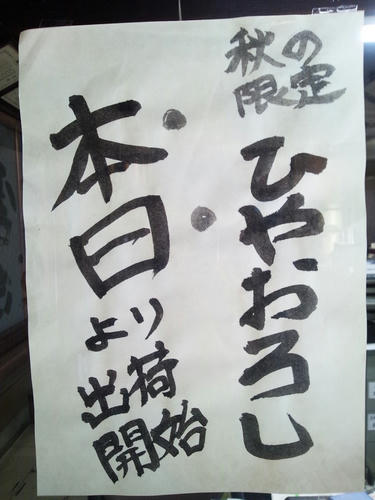 秋の
限定
ひやおろし
本日
より
出荷
開始